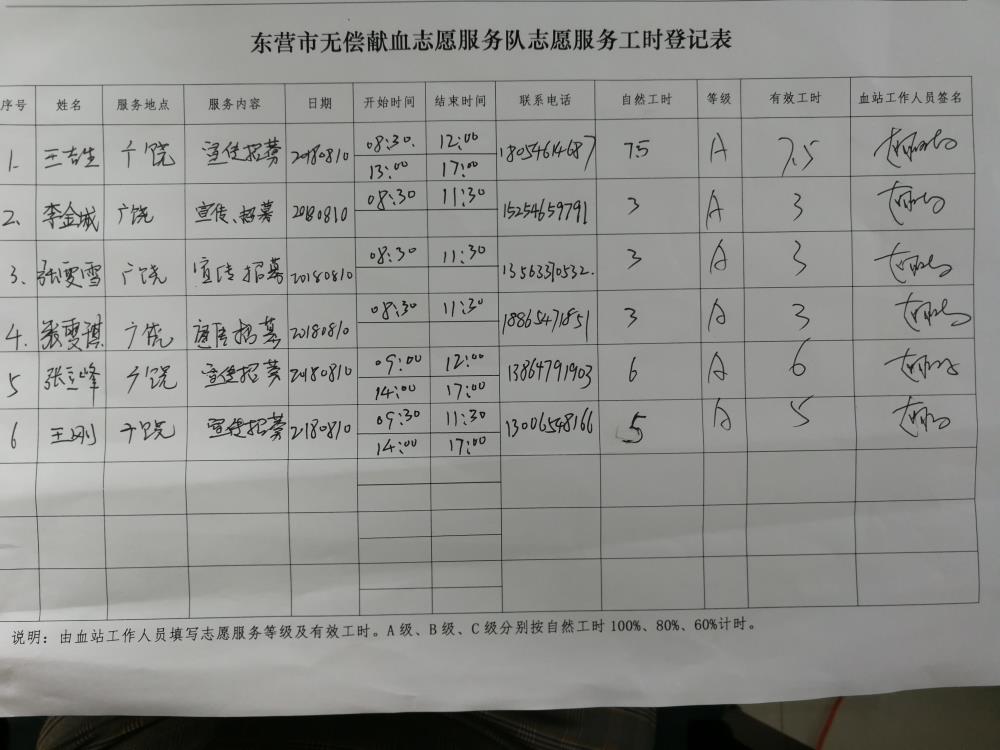 东营市无偿献血志愿服务队志愿服务工时登记表
序号 姓名 服务地点 服务内容 日期 开始时间 结束时间 联系电话 自然工时 等级 有效工时 血站工作人员签名
1. 王吉生 广饶 宣传招募 20180810 08:30. 12:00 18054614687 7.5 A 7.5
13:00 17:00
2. 李金城 广饶 宣传、招募 20180810 08:30 11:30 15254659791 3 A 3
3. 张雯雪 广饶 宣传招募 20180810 08:30 11:30 13563370532. 3 A 3
4. 张雯祺 广饶 宣传招募 20180810 08:30 11:30 18865471851 3 A 3
5 张立峰 广饶 宣传招募 20180810 09:00 12:00 13864791903 6 A 6
14:00 17:00
6 王刚 广饶 宣传招募 2180810 09:30 11:30 13006548166 5 A 5
14:00 17:00
说明：由血站工作人员填写志愿服务等级及有效工时。A级、B级、C级分别按自然工时100%、80%、60%计时。